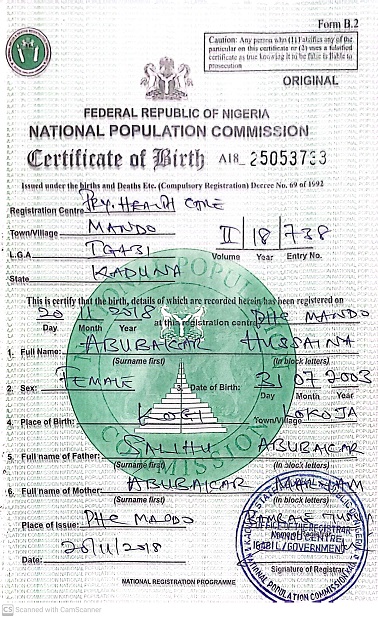 Form B.2
Caution: Any person who (1) falsifies any of the
particular on this certificate or (2) uses a falsified
certificate as true knowing it to be false is liable to
prosecution
ORIGINAL
FEDERAL REPUBLIC OF NIGERIA
NATIONAL POPULATION COMMISSION
Certificate of Birth A18_25053733
Issued under the births and Deaths Etc. (Compulsory Registration) Decree No. 69 of 1992
Registration Centre PRY. HEALTH CARE
Town/Village MANDO
II 18 738
L.G.A IGABI
Volume Year Entry No.
State KADUNA
This is certify that the birth, details of which are recorded herein has been registered on
20 11 2018 at this registration centre PHC MANDO
Day Month Year
1. Full Name: ABUBAKAR HUSSAINA
(Surname first) (in block letters)
2. Sex: FEMALE 3. Date of Birth: 31 07 2003
Day Month Year
4. Place of Birth: KOGI Town/Village LOKOJA
5. Full name of Father: SALIHU ABUBAKAR
(Surname first) (in block letters)
6. Full name of Mother: ABUBAKAR
(Surname first) (in block letters)
Place of Issue: PHC MANDO
OFFICE OF THE REGISTRAR
MANDO CENTRE
IGABI L/GOVERNMENT
Date: 20/11/2018
Signature of Registrar
NATIONAL POPULATION COMMISSION
NATIONAL REGISTRATION PROGRAMME
CS Scanned with CamScanner